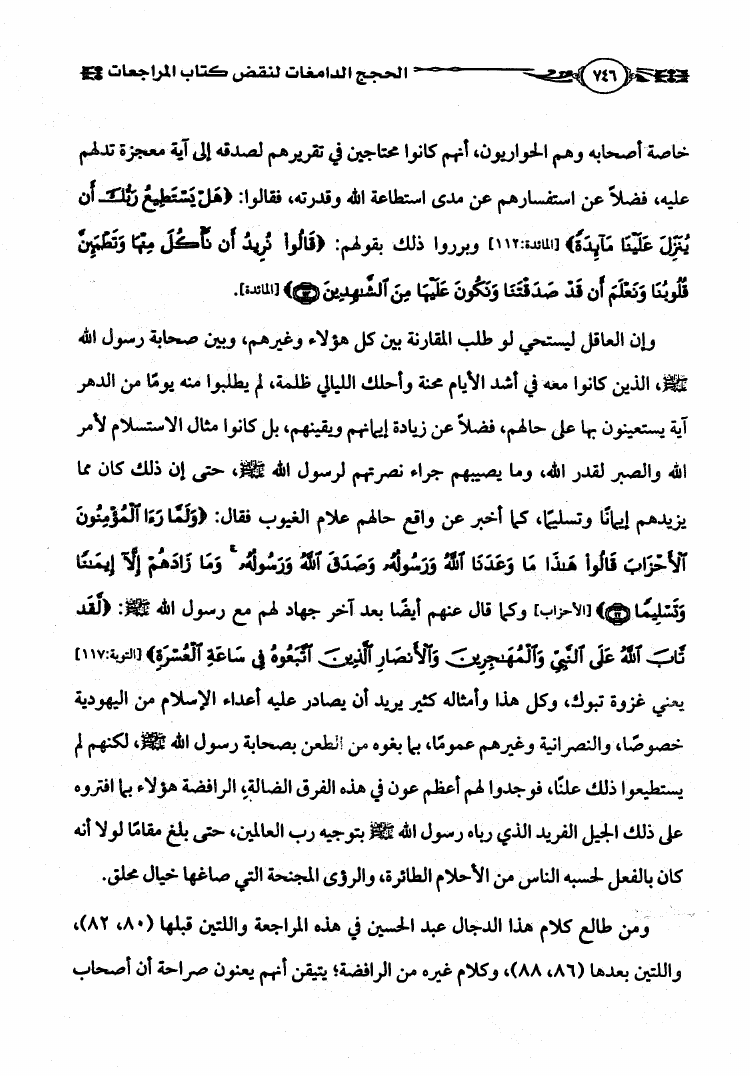 ٧٤٦ الحجج الدامغات لنقض كتاب المراجعات
خاصة أصحابه وهم الحواريون، أنهم كانوا محتاجين في تقريرهم لصدقه إلى آية معجزة تدلهم
عليه، فضلاً عن استفسارهم عن مدى استطاعة الله وقدرته، فقالوا: ﴿هَلْ يَسْتَطِيعُ رَبُّكَ أَن
يُنَزِّلَ عَلَيْنَا مَآئِدَةً﴾ [المائدة:١١٢] وبرروا ذلك بقولهم: ﴿قَالُوا۟ نُرِيدُ أَن نَّأْكُلَ مِنْهَا وَتَطْمَئِنَّ
قُلُوبُنَا وَنَعْلَمَ أَن قَدْ صَدَقْتَنَا وَنَكُونَ عَلَيْهَا مِنَ ٱلشَّٰهِدِينَ﴾ [المائدة].
وإن العاقل ليستحي لو طلب المقارنة بين كل هؤلاء وغيرهم، وبين صحابة رسول الله
ﷺ، الذين كانوا معه في أشد الأيام محنة وأحلك الليالي ظلمة، لم يطلبوا منه يومًا من الدهر
آية يستعينون بها على حالهم، فضلاً عن زيادة إيمانهم ويقينهم، بل كانوا مثال الاستسلام لأمر
الله والصبر لقدر الله، وما يصيبهم جراء نصرتهم لرسول الله ﷺ، حتى إن ذلك كان مما
يزيدهم إيمانًا وتسليمًا، كما أخبر عن واقع حالهم علام الغيوب فقال: ﴿وَلَمَّا رَءَا ٱلْمُؤْمِنُونَ
ٱلْأَحْزَابَ قَالُوا۟ هَٰذَا مَا وَعَدَنَا ٱللَّهُ وَرَسُولُهُۥ وَصَدَقَ ٱللَّهُ وَرَسُولُهُۥ ۚ وَمَا زَادَهُمْ إِلَّآ إِيمَٰنًا
وَتَسْلِيمًا ٢٢﴾ [الأحزاب] وكما قال عنهم أيضًا بعد آخر جهاد لهم مع رسول الله ﷺ: ﴿لَّقَد
تَّابَ ٱللَّهُ عَلَى ٱلنَّبِيِّ وَٱلْمُهَٰجِرِينَ وَٱلْأَنصَارِ ٱلَّذِينَ ٱتَّبَعُوهُ فِى سَاعَةِ ٱلْعُسْرَةِ﴾ [التوبة:١١٧]
يعني غزوة تبوك، وكل هذا وأمثاله كثير يريد أن يصادر عليه أعداء الإسلام من اليهودية
خصوصًا، والنصرانية وغيرهم عمومًا، بما بغوه من الطعن بصحابة رسول الله ﷺ، لكنهم لم
يستطيعوا ذلك علنًا، فوجدوا لهم أعظم عون في هذه الفرق الضالة، الرافضة هؤلاء بما افتروه
على ذلك الجيل الفريد الذي رباه رسول الله ﷺ بتوجيه رب العالمين، حتى بلغ مقامًا لولا أنه
كان بالفعل لحسبه الناس من الأحلام الطائرة، والرؤى المجنحة التي صاغها خيال محلق.
ومن طالع كلام هذا الدجال عبد الحسين في هذه المراجعة واللتين قبلها (٨٠، ٨٢)،
واللتين بعدها (٨٦، ٨٨)، وكلام غيره من الرافضة؛ يتيقن أنهم يعنون صراحة أن أصحاب